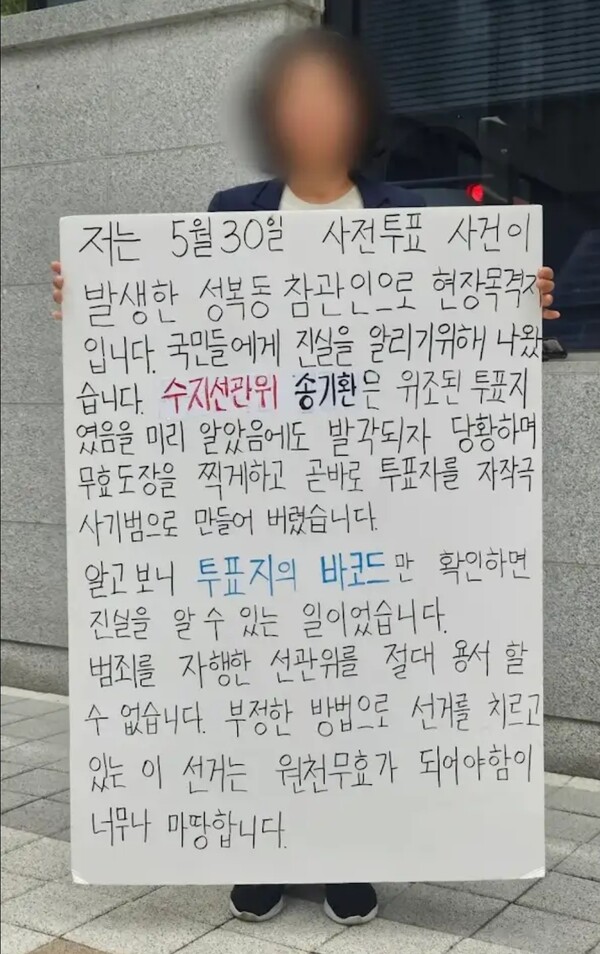 저는 5월 30일 사전투표 사건이
발생한 성복동 참관인으로 현장목격자
입니다. 국민들에게 진실을 알리기위해 나왔
습니다. 수지선관위 송기환은 위조된 투표지
였음을 미리 알았음에도 발각되자 당황하며
무효도장을 찍게하고 곧바로 투표자를 자작극
사기범으로 만들어 버렸습니다.
알고보니 투표지의 바코드만 확인하면
진실을 알 수 있는 일이었습니다.
범죄를 자행한 선관위를 절대 용서 할
수 없습니다. 부정한 방법으로 선거를 치르고
있는 이 선거는 원천무효가 되어야함이
너무나 마땅합니다.